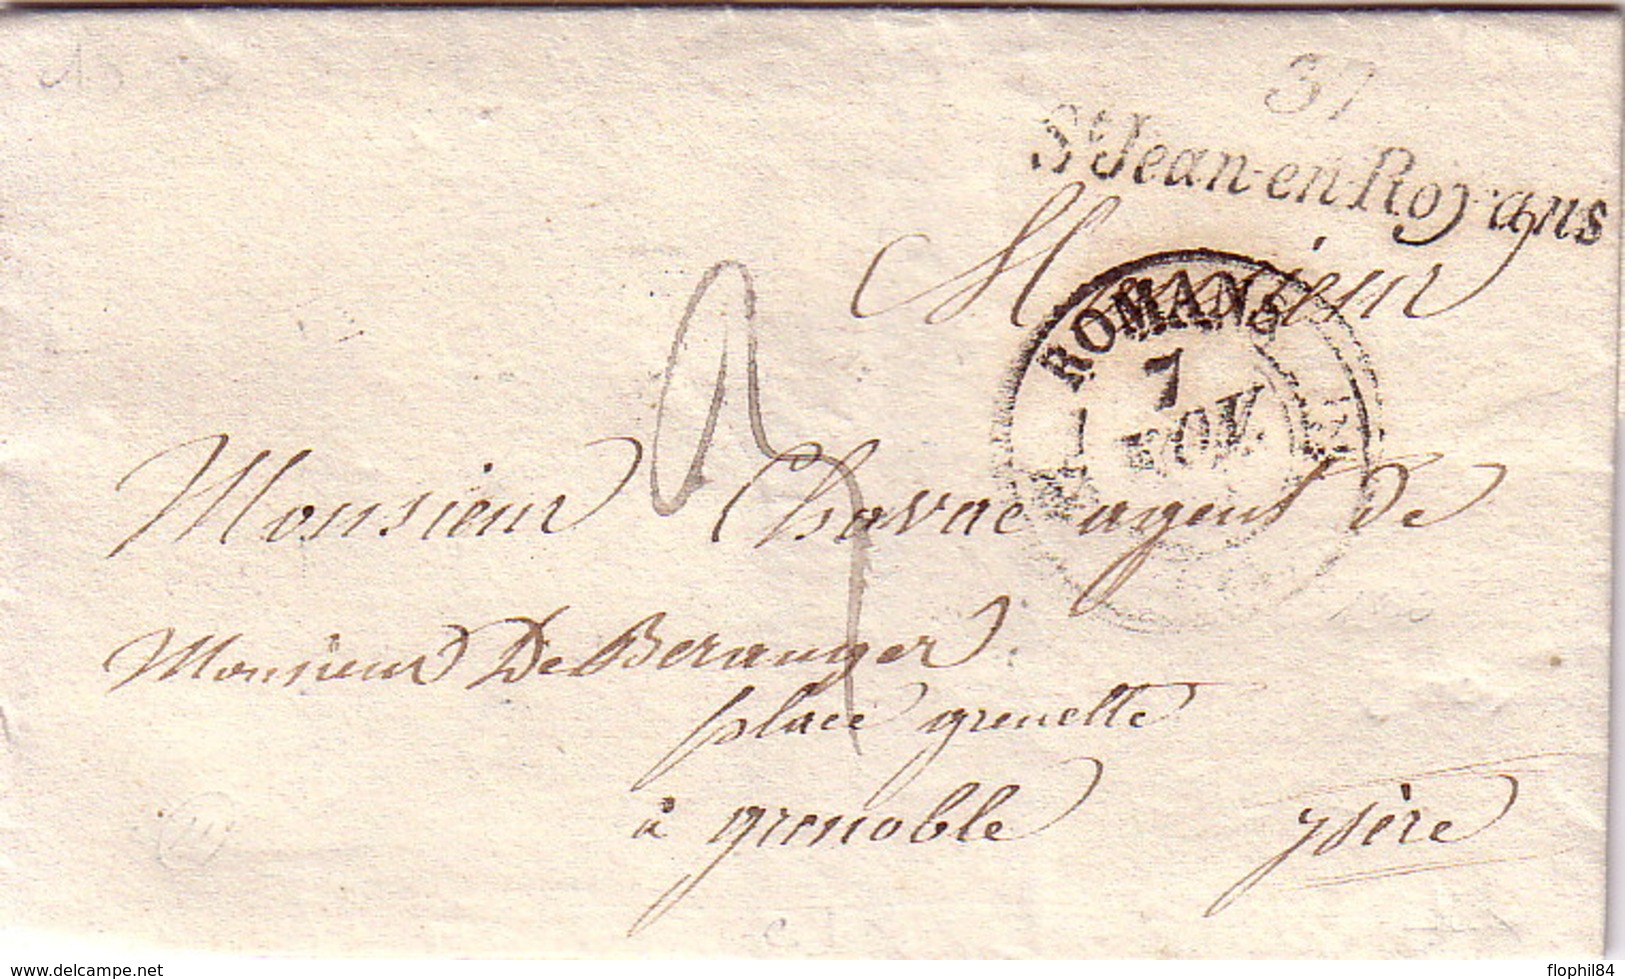 37
St Jean-en-Royans
Monsieur
ROMANS
7
NOV.
Monsieur Chavac agent de
Monsieur De Beranger
place grenette
à grenoble ysère
www.delcampe.net
flophil84